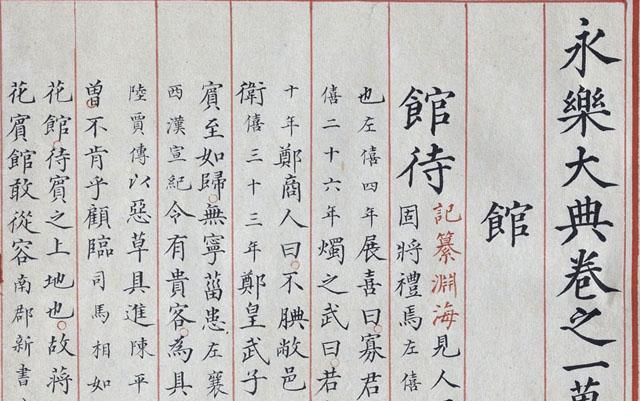 永樂大典卷之一萬
館
館待
記纂淵海見人
固將禮焉左僖
也左僖四年展喜曰寡君
僖二十六年燭之武曰若
十年鄭商人曰不腆敝邑
衛僖三十三年鄭皇武子
賓至如歸無寧菑患左襄
西漢宣紀令有貴客為具
陸賈傳以惡草具進陳平
曾不肯乎顧臨司馬相如
花館待賓之上地也故蔣
花賓館敢從容南郡新書